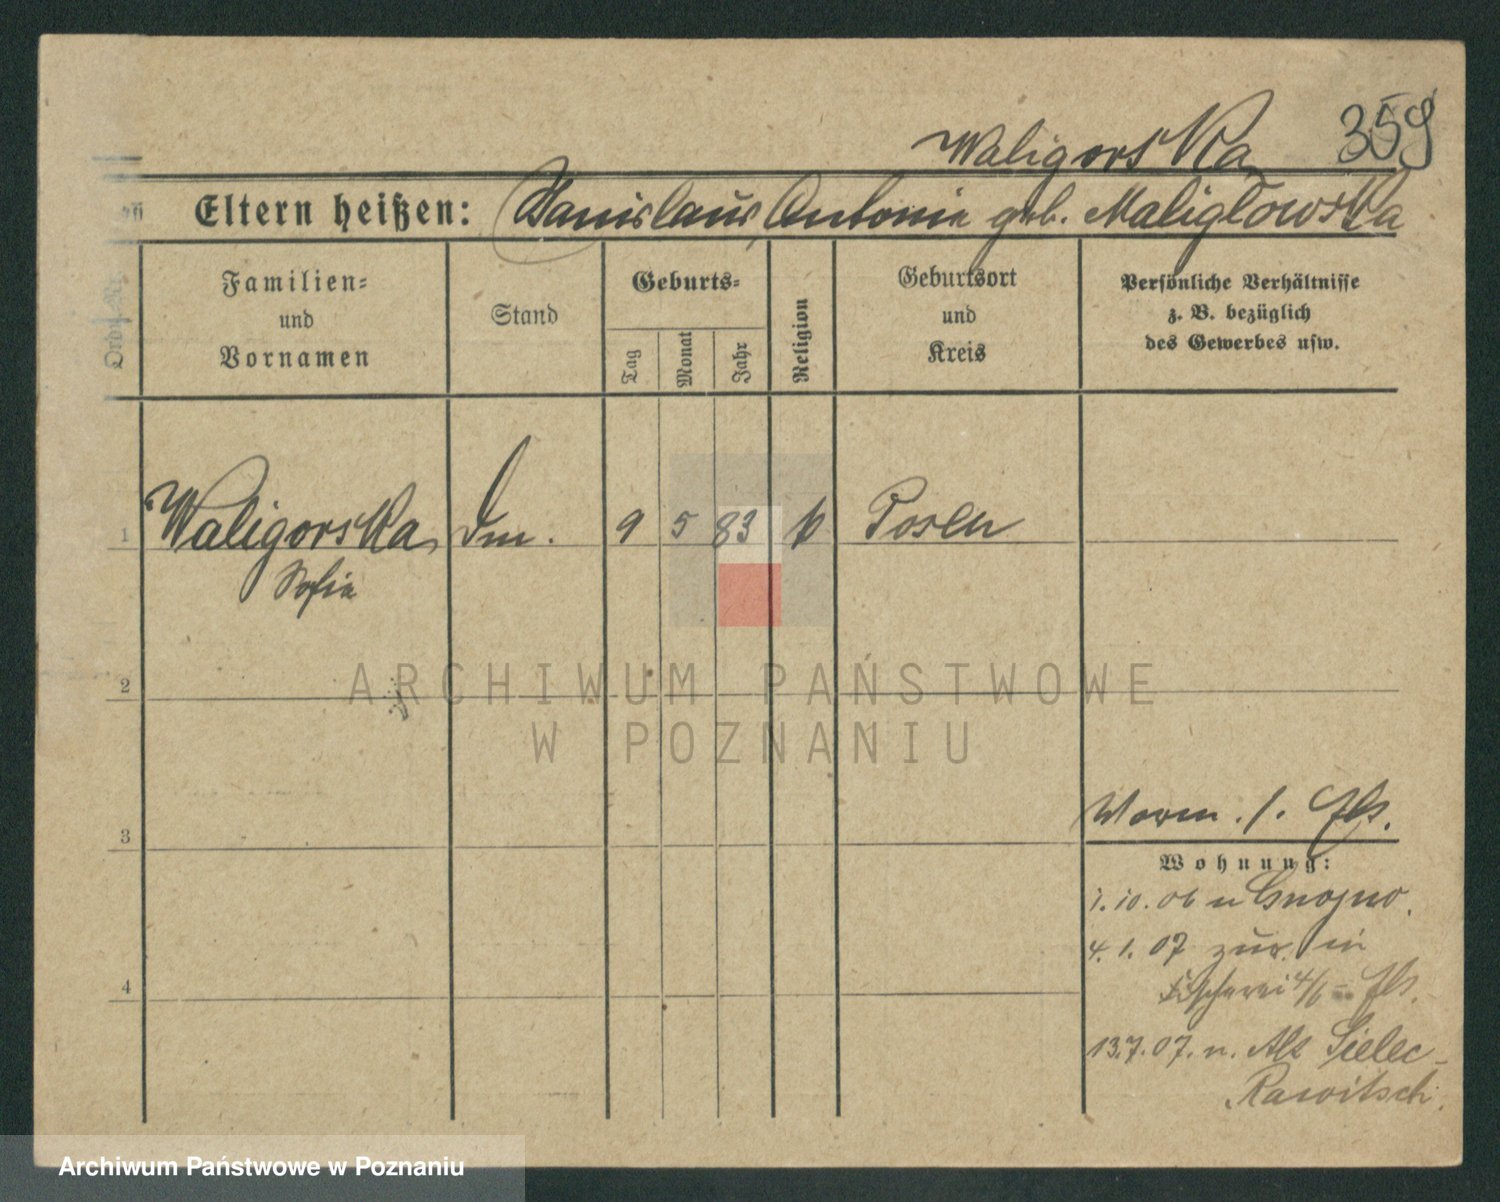 Waligorska 359
Eltern heißen: Stanislaus, Antonie geb. Maliglowska
Ordn.-Nr.
Familien=
und
Vornamen
Stand
Geburts=
Tag
Monat
Jahr
Religion
Geburtsort
und
Kreis
Persönliche Verhältnisse
z. B. bezüglich
des Gewerbes usw.
1 Waligorska, 9 5 83 k Posen
Sofie
2
ARCHIWUM PAŃSTWOWE
W POZNANIU
3
Wohnung:
1.10.06 n Gnojno.
4.1.07 zur. in
Fischerei 4/6
4
13.7.07. n. Alt Sielec-
Rawitsch.
Archiwum Państwowe w Poznaniu